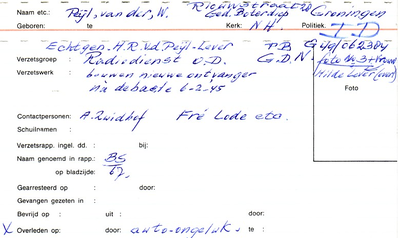 Riouwstraat
Naam etc.: Peijl, van der, W. Ged. Boterdiep Groningen
Geboren: te Kerk: N.H. Politiek.
I-D
Echtgen. H.R.v.d.Peijl-Lever P.B G 49/062304
Verzetsgroep Radiodienst O.D. G.D.N. foto Nr 3 + vrouw
Verzetswerk bouwen nieuwe ontvanger Hilde Lever (over)
na debacle 6-2-45
Foto
Contactpersonen: A. Zuidhof Fré Lode etc.
Schuilnamen :
Verzetsrapp. ingel. dd. : bij:
Naam genoemd in rapp.: BS
op bladzijde: 67.
Gearresteerd op : door:
Gevangen gezeten in :
Bevrijd op : uit : door:
X Overleden op: door: auto-ongeluk. te :